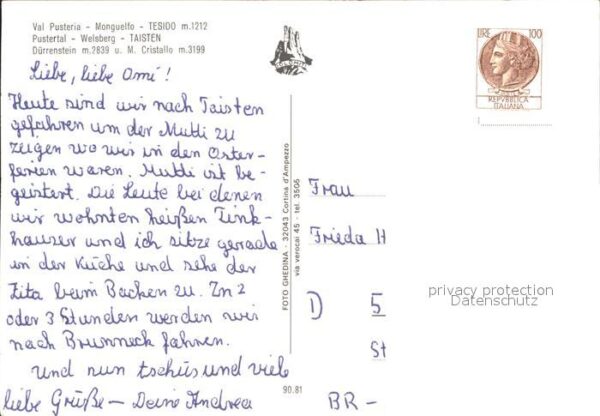 Val Pusteria - Monguelfo - TESIDO m.1212
Pustertal - Welsberg - TAISTEN
Dürrenstein m.2839 u. M. Cristallo m.3199
Liebe, liebe Omi!
Heute sind wir nach Taisten
gefahren um der Mutti zu
zeigen wo wir in den Oster-
ferien waren. Mutti ist be-
geistert. Die Leute bei denen
wir wohnten heißen Tink-
hauser und ich sitze gerade
in der Küche und sehe der
Zita beim Backen zu. In 2
oder 3 Stunden werden wir
nach Brunneck fahren.
Und nun tschüs und viele
liebe Grüße — Deine Andrea
FOTO GHEDINA - 32043 Cortina d'Ampezzo
via verocai 45 - tel. 3506
90.81
LIRE 100
REPVBBLICA
ITALIANA
Frau
Frieda H
privacy protection
Datenschutz
D 5
St
BR-